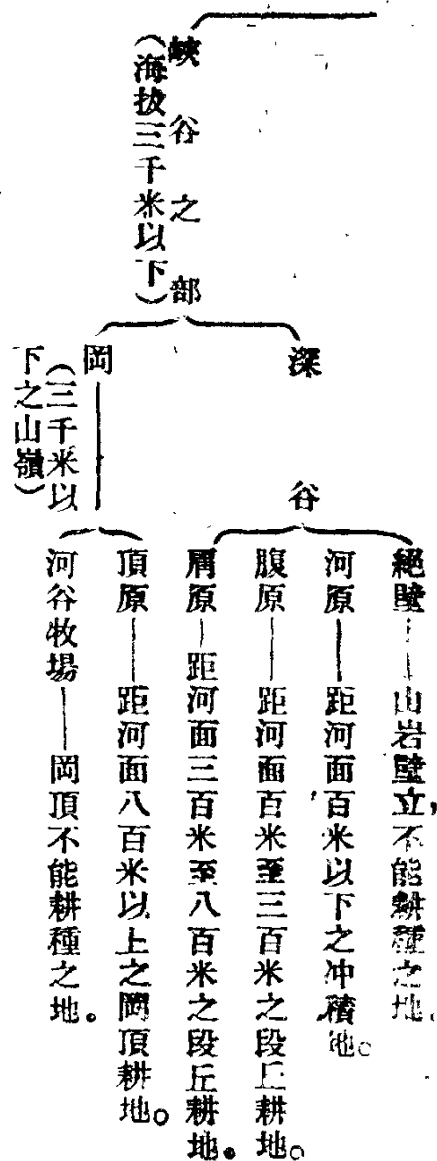 峽谷之部
（海拔三千米以下）
深谷
絕壁——山岩壁立，不能耕種之地。
河原——距河面百米以下之冲積地。
腹原——距河面百米至三百米之段丘耕地。
肩原——距河面三百米至八百米之段丘耕地。
岡
（三千米以
下之山嶺）
頂原——距河面八百米以上之岡頂耕地。
河谷牧場——岡頂不能耕種之地。